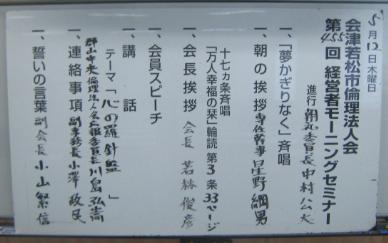 5月12日木曜日
会津若松市倫理法人会
第455回 経営者モーニングセミナー
進行 朝礼委員長 中村公大
一、「夢かぎりなく」斉唱
一、朝の挨拶 専任幹事 星野綱男
十七ヵ条斉唱
「万人幸福の栞」輪読 第3条33ページ
一、会長挨拶 会長 若林俊彦
一、会員スピーチ
一、講話
テーマ「心の羅針盤」
郡山中央倫理法人会 広報委員長 川島弘壽
一、連絡事項 副事務長 小澤政民
一、誓いの言葉 副会長 小山繁信